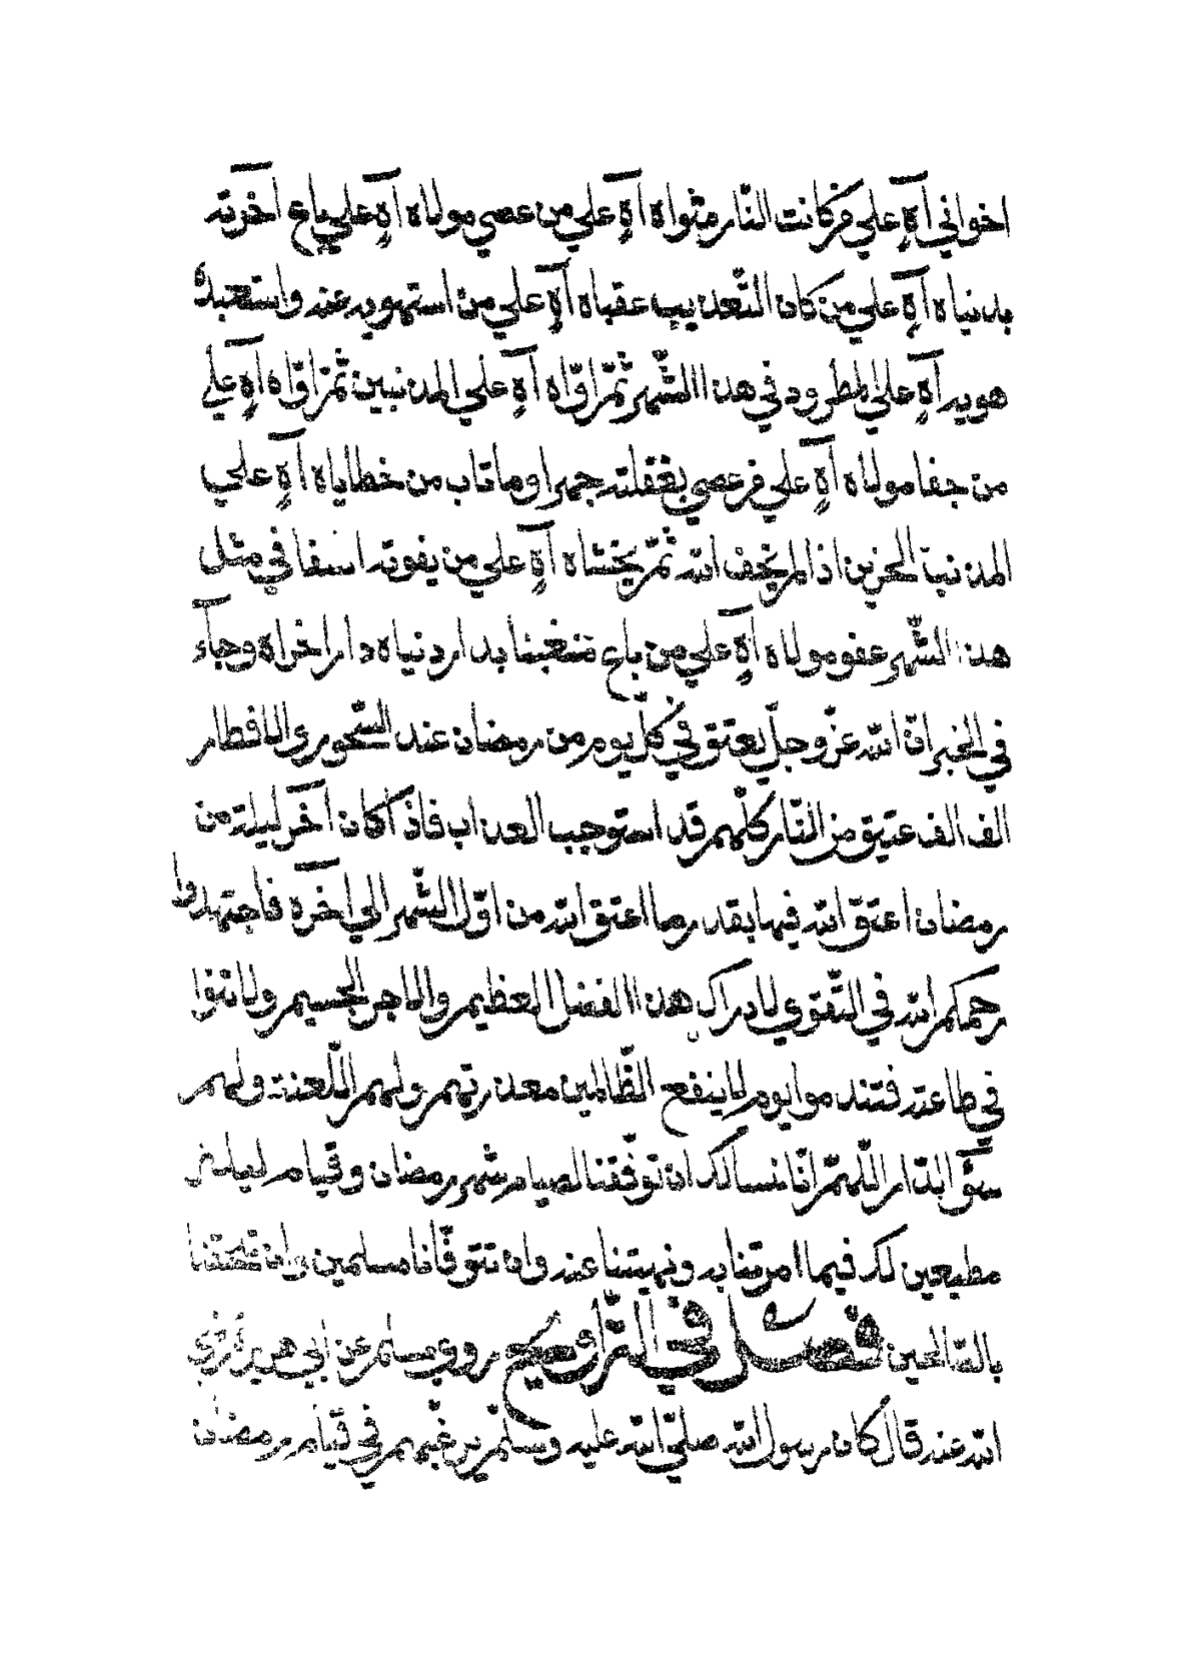 اخواني آهٍ علي من كانت النّار مثواه آهٍ علي من عصي مولاه آهٍ علي باع آخرته
بدنياه آهٍ علي من كان التّعذيب عقباه آهٍ علي من استهويه عند واستعبده
هويه آهٍ علي المطرود في هذا الشّهر ثمّ اقّاه آهٍ علي المذنبين ثمّ اقّاه آهٍ علي
من جفا مولاه آهٍ علي من عصي بغفلته جهرا وما تاب من خطاياه آهٍ علي
المذنب الحزين اذا لم يخف الله ثمّ يخشاه آهٍ علي من يفوته اسفا في مثل
هذا الشّهر عفو مولاه آهٍ علي من باع بدار دنياه دار اخراه وجآء
في الخبر انّ الله عزّ وجلّ يعتق في كلّ يوم من رمضان عند السّحور الي الافطار
الف الف عتيق من النّار كلّهم قد استوجب العذاب فاذا كان آخر ليلة من
رمضان اعتق الله فيها بقدر ما اعتق الله من اوّل الشّهر الي اخره فاجتهدوا
رحمكم الله في التّقوي لادراك هذا الفضل العظيم والاجر الجسيم ولا
في طاعته فتندموا يوم لا ينفع الظّالمين معذرتهم ولهم اللّعنة ولهم
سوٓء الدّار اللّهمّ انّا نسالك ان توفّقنا لصيام شهر رمضان وقيام لياليه
مطيعين لك فيما امرتنا به ونهيتنا عنه وان تتوفّانا مسلمين وان تلحقنا
بالصّالحين فصل في التّراويح روي مسلم عن ابي هريرة رضي
الله عنه قال كان رسول الله صلّي الله عليه وسلّم يرغّبهم في قيام رمضان